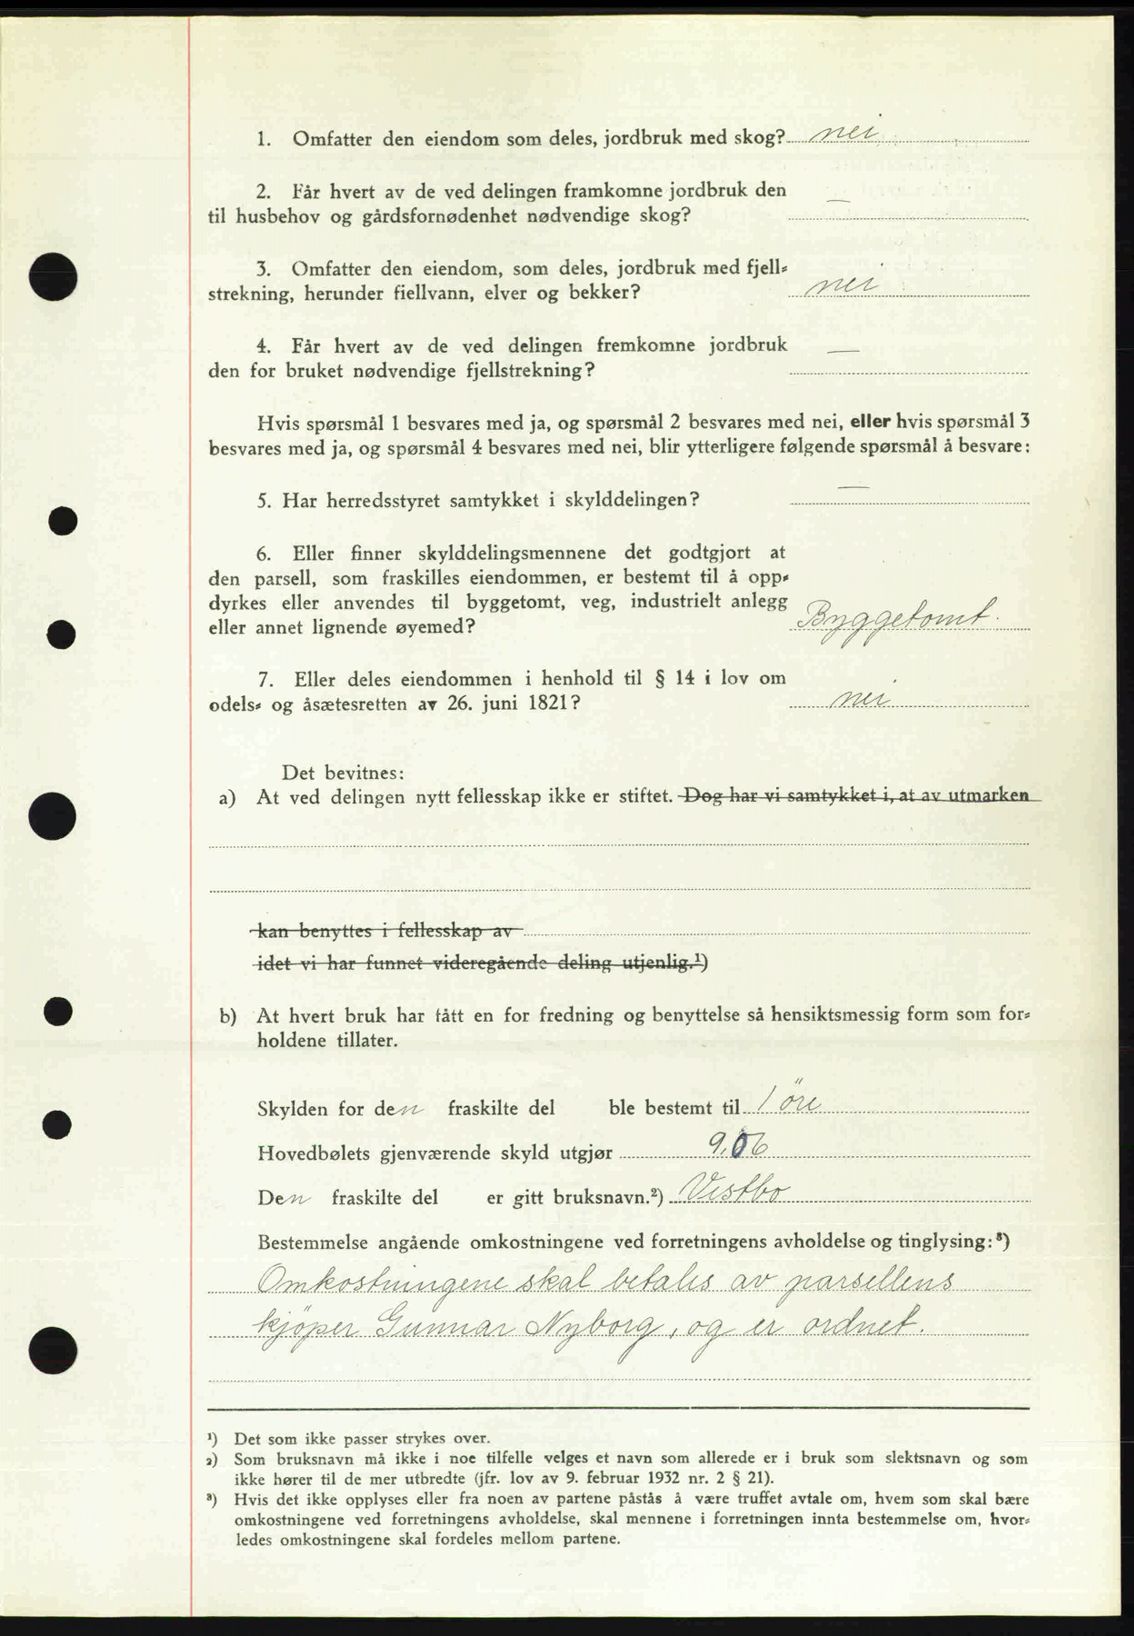 1. Omfatter den eiendom som deles, jordbruk med skog? nei
2. Får hvert av de ved delingen framkomne jordbruk den
til husbehov og gårdsfornødenhet nødvendige skog? —
3. Omfatter den eiendom, som deles, jordbruk med fjell=
strekning, herunder fiellvann, elver og bekker? nei
4. Får hvert av de ved delingen fremkomne jordbruk
den for bruket nødvendige fjellstrekning? —
Hvis spørsmål 1 besvares med ja, og spørsmål 2 besvares med nei, eller hvis spørsmål 3
besvares med ja, og spørsmål 4 besvares med nei, blir ytterligere følgende spørsmål å besvare:
5. Har herredsstyret samtykket i skylddelingen? —
6. Eller finner skylddelingsmennene det godtgjort at
den parsell, som fraskilles eiendommen, er bestemt til å opp=
dyrkes eller anvendes til byggetomt, veg, industrielt anlegg
eller annet lignende øyemed? Byggetomt.
7. Eller deles eiendommen i henhold til § 14 i lov om
odels= og åsætesretten av 26. juni 1821? nei
Det bevitnes:
a) At ved delingen nytt fellesskap ikke er stiftet. Dog har vi samtykket i, at av utmarken
kan benyttes i fellesskap av
idet vi har funnet videregående deling utjenlig.¹)
b) At hvert bruk har fått en for fredning og benyttelse så hensiktsmessig form som for=
holdene tillater.
Skylden for den fraskilte del ble bestemt til 1 öre
Hovedbølets gjenværende skyld utgjør 9.06
Den fraskilte del er gitt bruksnavn.²) Vestbo
Bestemmelse angående omkostningene ved forretningens avholdelse og tinglysing:³)
Omkostningene skal betales av parsellens
kjøper Gunnar Nyborg, og er ordnet.
¹) Det som ikke passer strykes over.
²) Som bruksnavn må ikke i noe tilfelle velges et navn som allerede er i bruk som slektsnavn og som
ikke hører til de mer utbredte (jfr. lov av 9. februar 1932 nr. 2 § 21).
³) Hvis det ikke opplyses eller fra noen av partene påstås å være truffet avtale om, hvem som skal bære
omkostningene ved forretningens avholdelse, skal mennene i forretningen innta bestemmelse om, hvor=
ledes omkostningene skal fordeles mellom partene.